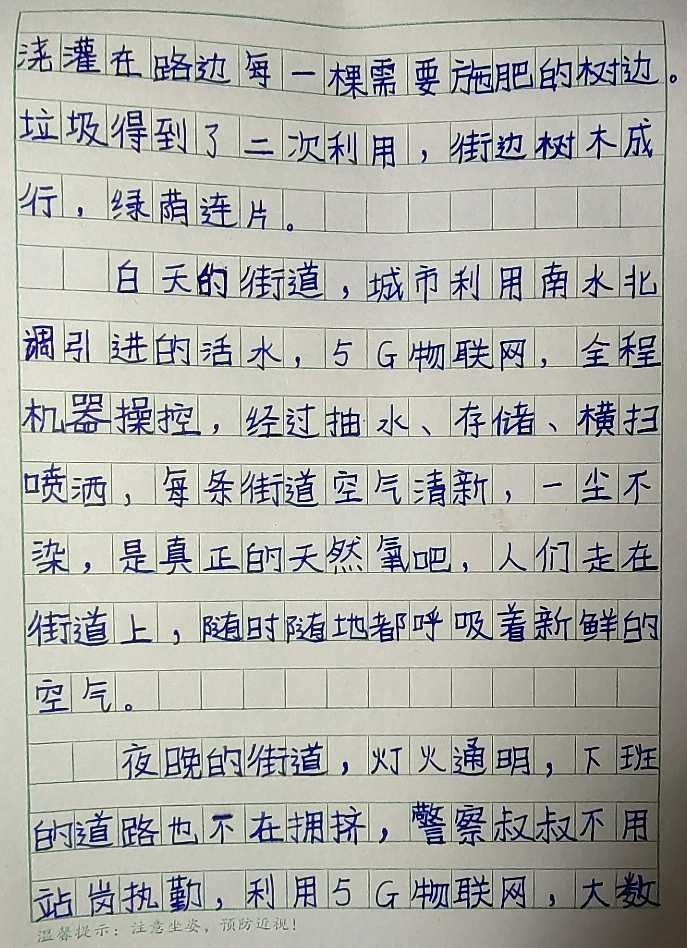 浇灌在路边每一棵需要施肥的树边。
垃圾得到了二次利用，街边树木成
行，绿荫连片。
白天的街道，城市利用南水北
调引进的活水，5G物联网，全程
机器操控，经过抽水、存储、横扫
喷洒，每条街道空气清新，一尘不
染，是真正的天然氧吧，人们走在
街道上，随时随地都呼吸着新鲜的
空气。
夜晚的街道，灯火通明，下班
的道路也不在拥挤，警察叔叔不用
站岗执勤，利用5G物联网，大数
温馨提示：注意坐姿，预防近视！